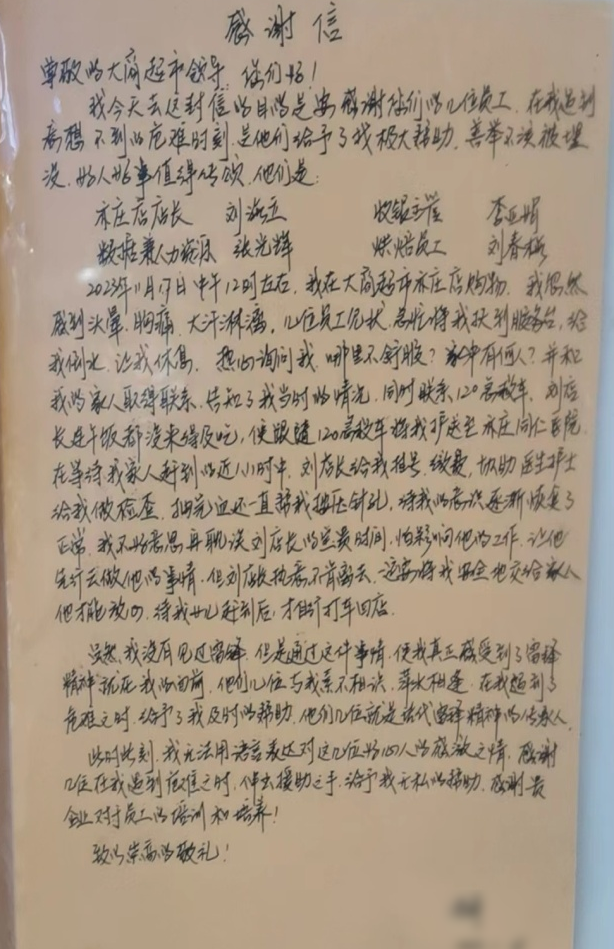 感谢信
尊敬的大商超市领导，你们好！
我今天去这封信的目的是要感谢你们的几位员工，在我遇到
意想不到的危难时刻，是他们给予了我极大帮助，善举不该被埋
没，好人好事值得传颂，他们是：
亦庄店店长 刘 收银主管 李亚娟
数据兼人力资源 张光辉 烘焙员工 刘春梅
2023年11月17日中午12时左右，我在大商超市亦庄店购物，我忽然
感到头晕，胸痛，大汗淋漓，几位员工见状，急忙将我扶到服务台，给
我倒水，让我休息，热心询问我，哪里不舒服？家中有何人？并和
我的家人取得联系，告知了我当时的情况，同时联系120急救车，刘店
长连午饭都没来得及吃，便跟随120急救车将我护送至亦庄同仁医院
在等待我家人赶到的近1小时中，刘店长给我挂号，缴费，协助医生护士
给我做检查，抽完血还一直帮我按压针孔，待我的意识逐渐恢复了
正常，我不好意思再耽误刘店长的宝贵时间，怕影响他的工作，让他
先行去做他的事情，但刘店长执意不肯离去，一定要将我安全地交给家人
他才能放心，待我女儿赶到后，才自行打车回店。
虽然，我没有见过雷锋，但是通过这件事情，使我真正感受到了雷锋
精神就在我的面前，他们几位与我素不相识，萍水相逢，在我遇到了
危难之时，给予了我及时的帮助，他们几位就是当代雷锋精神的传承人
此时此刻，我无法用语言表达对这几位好心人的感激之情，感谢
几位在我遇到危难之时，伸出援助之手，给予我无私的帮助，感谢贵
企业对于员工的培训和培养！
致以崇高的敬礼！